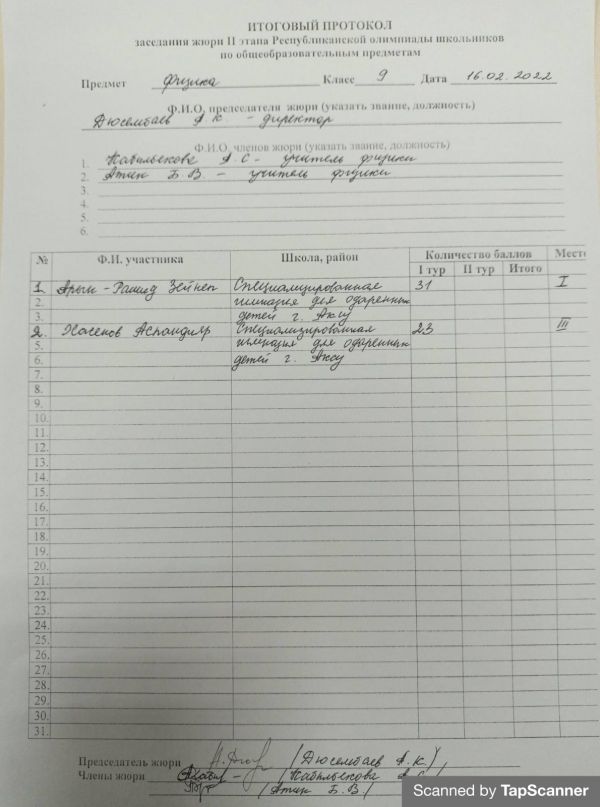 ИТОГОВЫЙ ПРОТОКОЛ
заседания жюри II этапа Республиканской олимпиады школьников
по общеобразовательным предметам
Предмет физика Класс 9 Дата 16.02.2022
Ф.И.О. председателя жюри (указать звание, должность)
Дюсембаев А.К. - директор
Ф.И.О. членов жюри (указать звание, должность)
1. Кабылбекова А.С - учитель физики
2. Атин Б.В - учитель физики
3.
4.
5.
6.
№ Ф.И. участника Школа, район Количество баллов Место
I тур II тур Итого
1. Арын-Рашид Зейнеп Специализированная 31 I
2. гимназия для одаренных
3. детей г. Аксу
2. Хасенов Аспандияр Специализированная 23 III
5. гимназия для одаренных
6. детей г. Аксу
7.
8.
9.
10.
11.
12.
13.
14.
15.
16.
17.
18.
19.
20.
21.
22.
23.
24.
25.
26.
27.
28.
29.
30.
31.
Председатель жюри /Дюсембаев А.К./
Члены жюри /Кабылбекова А.С/
/Атин Б.В/
Scanned by TapScanner